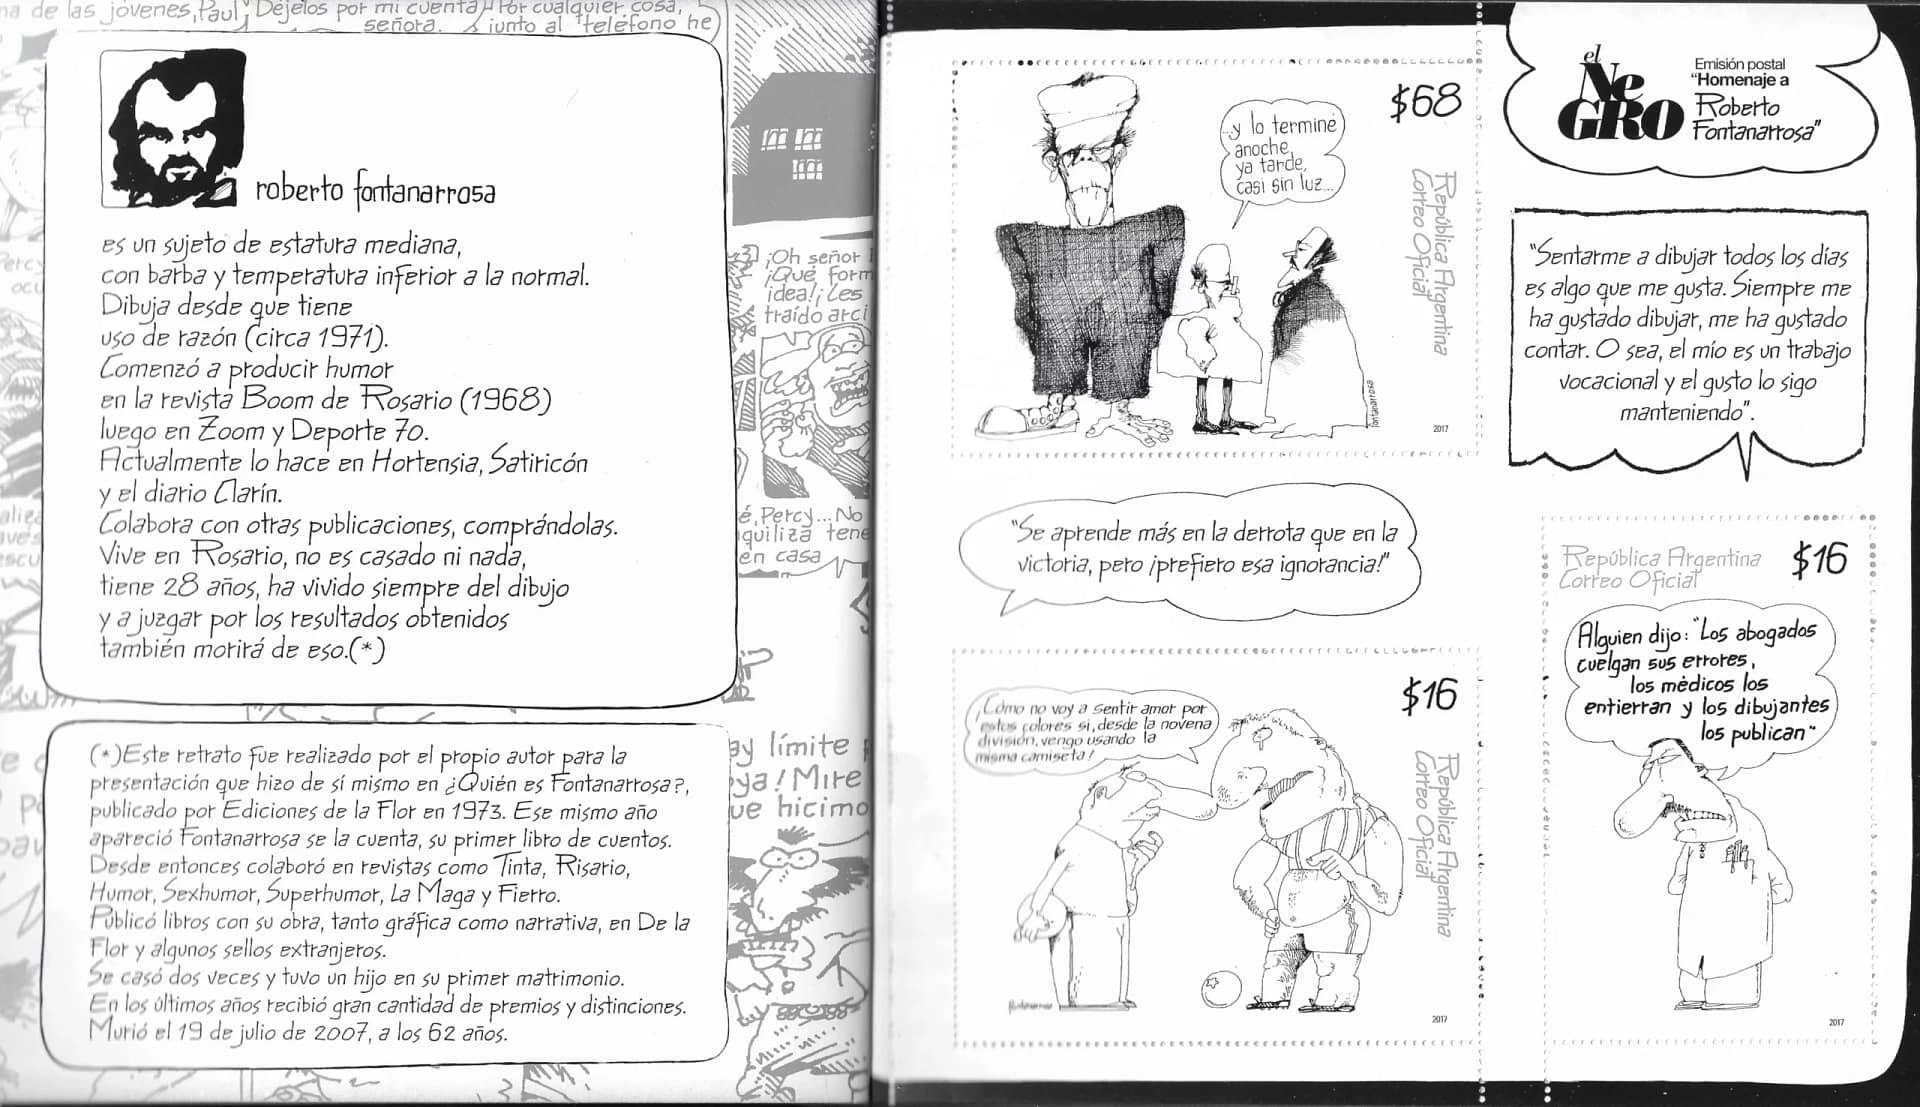 na de las jóvenes, Paul
Déjelos por mi cuenta,
señora.
Por cualquier cosa,
junto al teléfono he
roberto fontanarrosa
es un sujeto de estatura mediana,
con barba y temperatura inferior a la normal.
Dibuja desde que tiene
uso de razón (circa 1971).
Comenzó a producir humor
en la revista Boom de Rosario (1968)
luego en Zoom y Deporte 70.
Actualmente lo hace en Hortensia, Satiricón
y el diario Clarín.
Colabora con otras publicaciones, comprándolas.
Vive en Rosario, no es casado ni nada,
tiene 28 años, ha vivido siempre del dibujo
y a juzgar por los resultados obtenidos
también morirá de eso.(*)
(*)Este retrato fue realizado por el propio autor para la
presentación que hizo de sí mismo en ¿Quién es Fontanarrosa?,
publicado por Ediciones de la Flor en 1973. Ese mismo año
apareció Fontanarrosa se la cuenta, su primer libro de cuentos.
Desde entonces colaboró en revistas como Tinta, Risario,
Humor, Sexhumor, Superhumor, La Maga y Fierro.
Publicó libros con su obra, tanto gráfica como narrativa, en De la
Flor y algunos sellos extranjeros.
Se casó dos veces y tuvo un hijo en su primer matrimonio.
En los últimos años recibió gran cantidad de premios y distinciones.
Murió el 19 de julio de 2007, a los 62 años.
¡Oh señor
¡Qué form
idea!¡Les
traído arci
é, Percy... No
quiliza tene
en casa
ay límite
ya! Mire
ue hicimo
$68
República Argentina
Correo Oficial
...y lo terminé
anoche,
ya tarde,
casi sin luz...
fontanarrosa
2017
"Se aprende más en la derrota que en la
victoria, pero ¡prefiero esa ignorancia!"
$16
República Argentina
Correo Oficial
¡Cómo no voy a sentir amor por
estos colores si, desde la novena
división, vengo usando la
misma camiseta!
Fontanarrosa
2017
el
NeGRO
Emisión postal
"Homenaje a
Roberto
Fontanarrosa"
"Sentarme a dibujar todos los días
es algo que me gusta. Siempre me
ha gustado dibujar, me ha gustado
contar. O sea, el mío es un trabajo
vocacional y el gusto lo sigo
manteniendo".
República Argentina
Correo Oficial
$16
Alguien dijo: "Los abogados
cuelgan sus errores,
los médicos los
entierran y los dibujantes
los publican"
2017